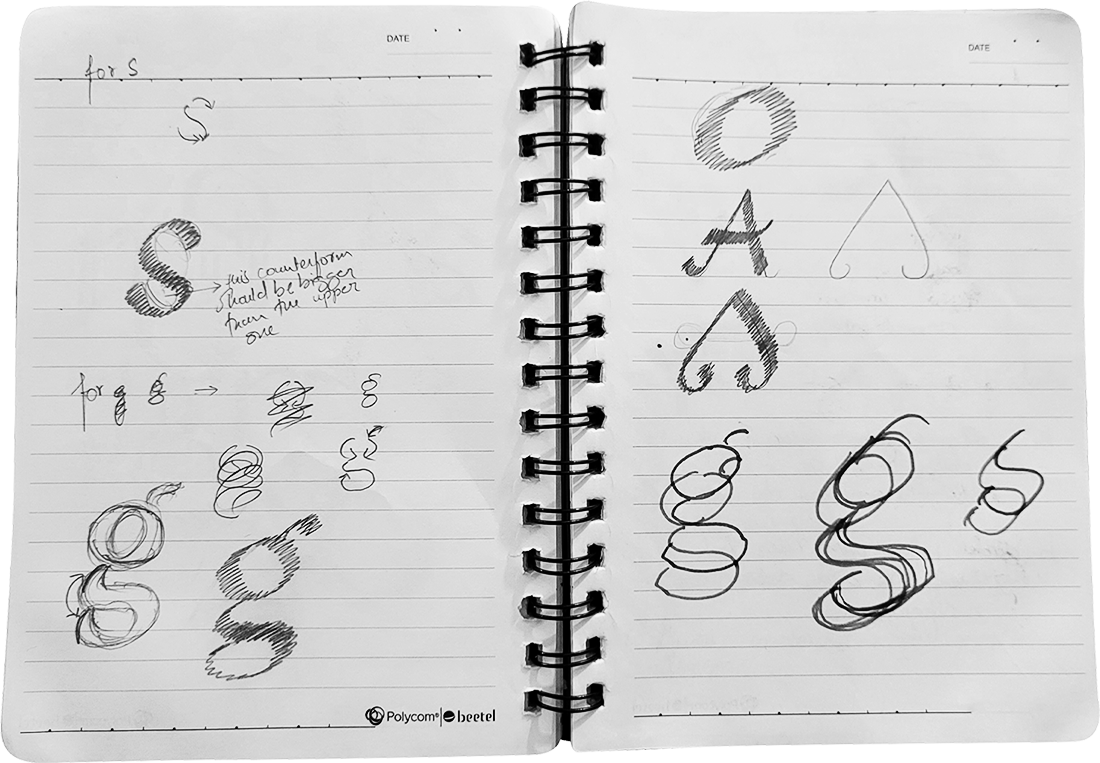 DATE
for S
S
S
this counterform
should be bigger
than the upper
one
for g g →
g
g
g g
Polycom® | beetel
DATE
O
A
g g